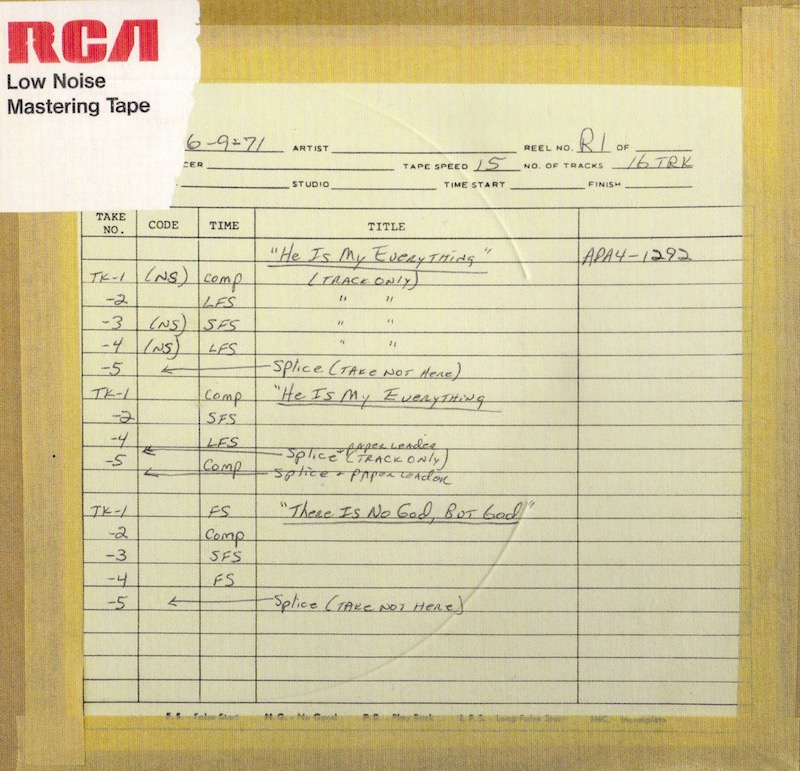 RCA
Low Noise
Mastering Tape
6-9-71 ARTIST REEL NO. R1 OF
CER TAPE SPEED 15 NO. OF TRACKS 16 TRK
STUDIO TIME START FINISH
TAKE NO. CODE TIME TITLE
"He Is My Everything" APA4-1292
TK-1 (NS) Comp (TRACK ONLY)
-2 LFS " "
-3 (NS) SFS " "
-4 (NS) LFS " "
-5 ← Splice (TAKE NOT HERE)
TK-1 Comp "He Is My Everything
-2 SFS
-4 LFS
← Splice - PAPER LEADER
-5 Comp (TRACK ONLY)
← Splice - PAPER LEADER
TK-1 FS "There Is No God, But God"
-2 Comp
-3 SFS
-4 FS
-5 ← Splice (TAKE NOT HERE)
F.S. - False Start N.G. - No Good P.B. - Play Back L.F.S. - Long False Start INC. - Incomplete